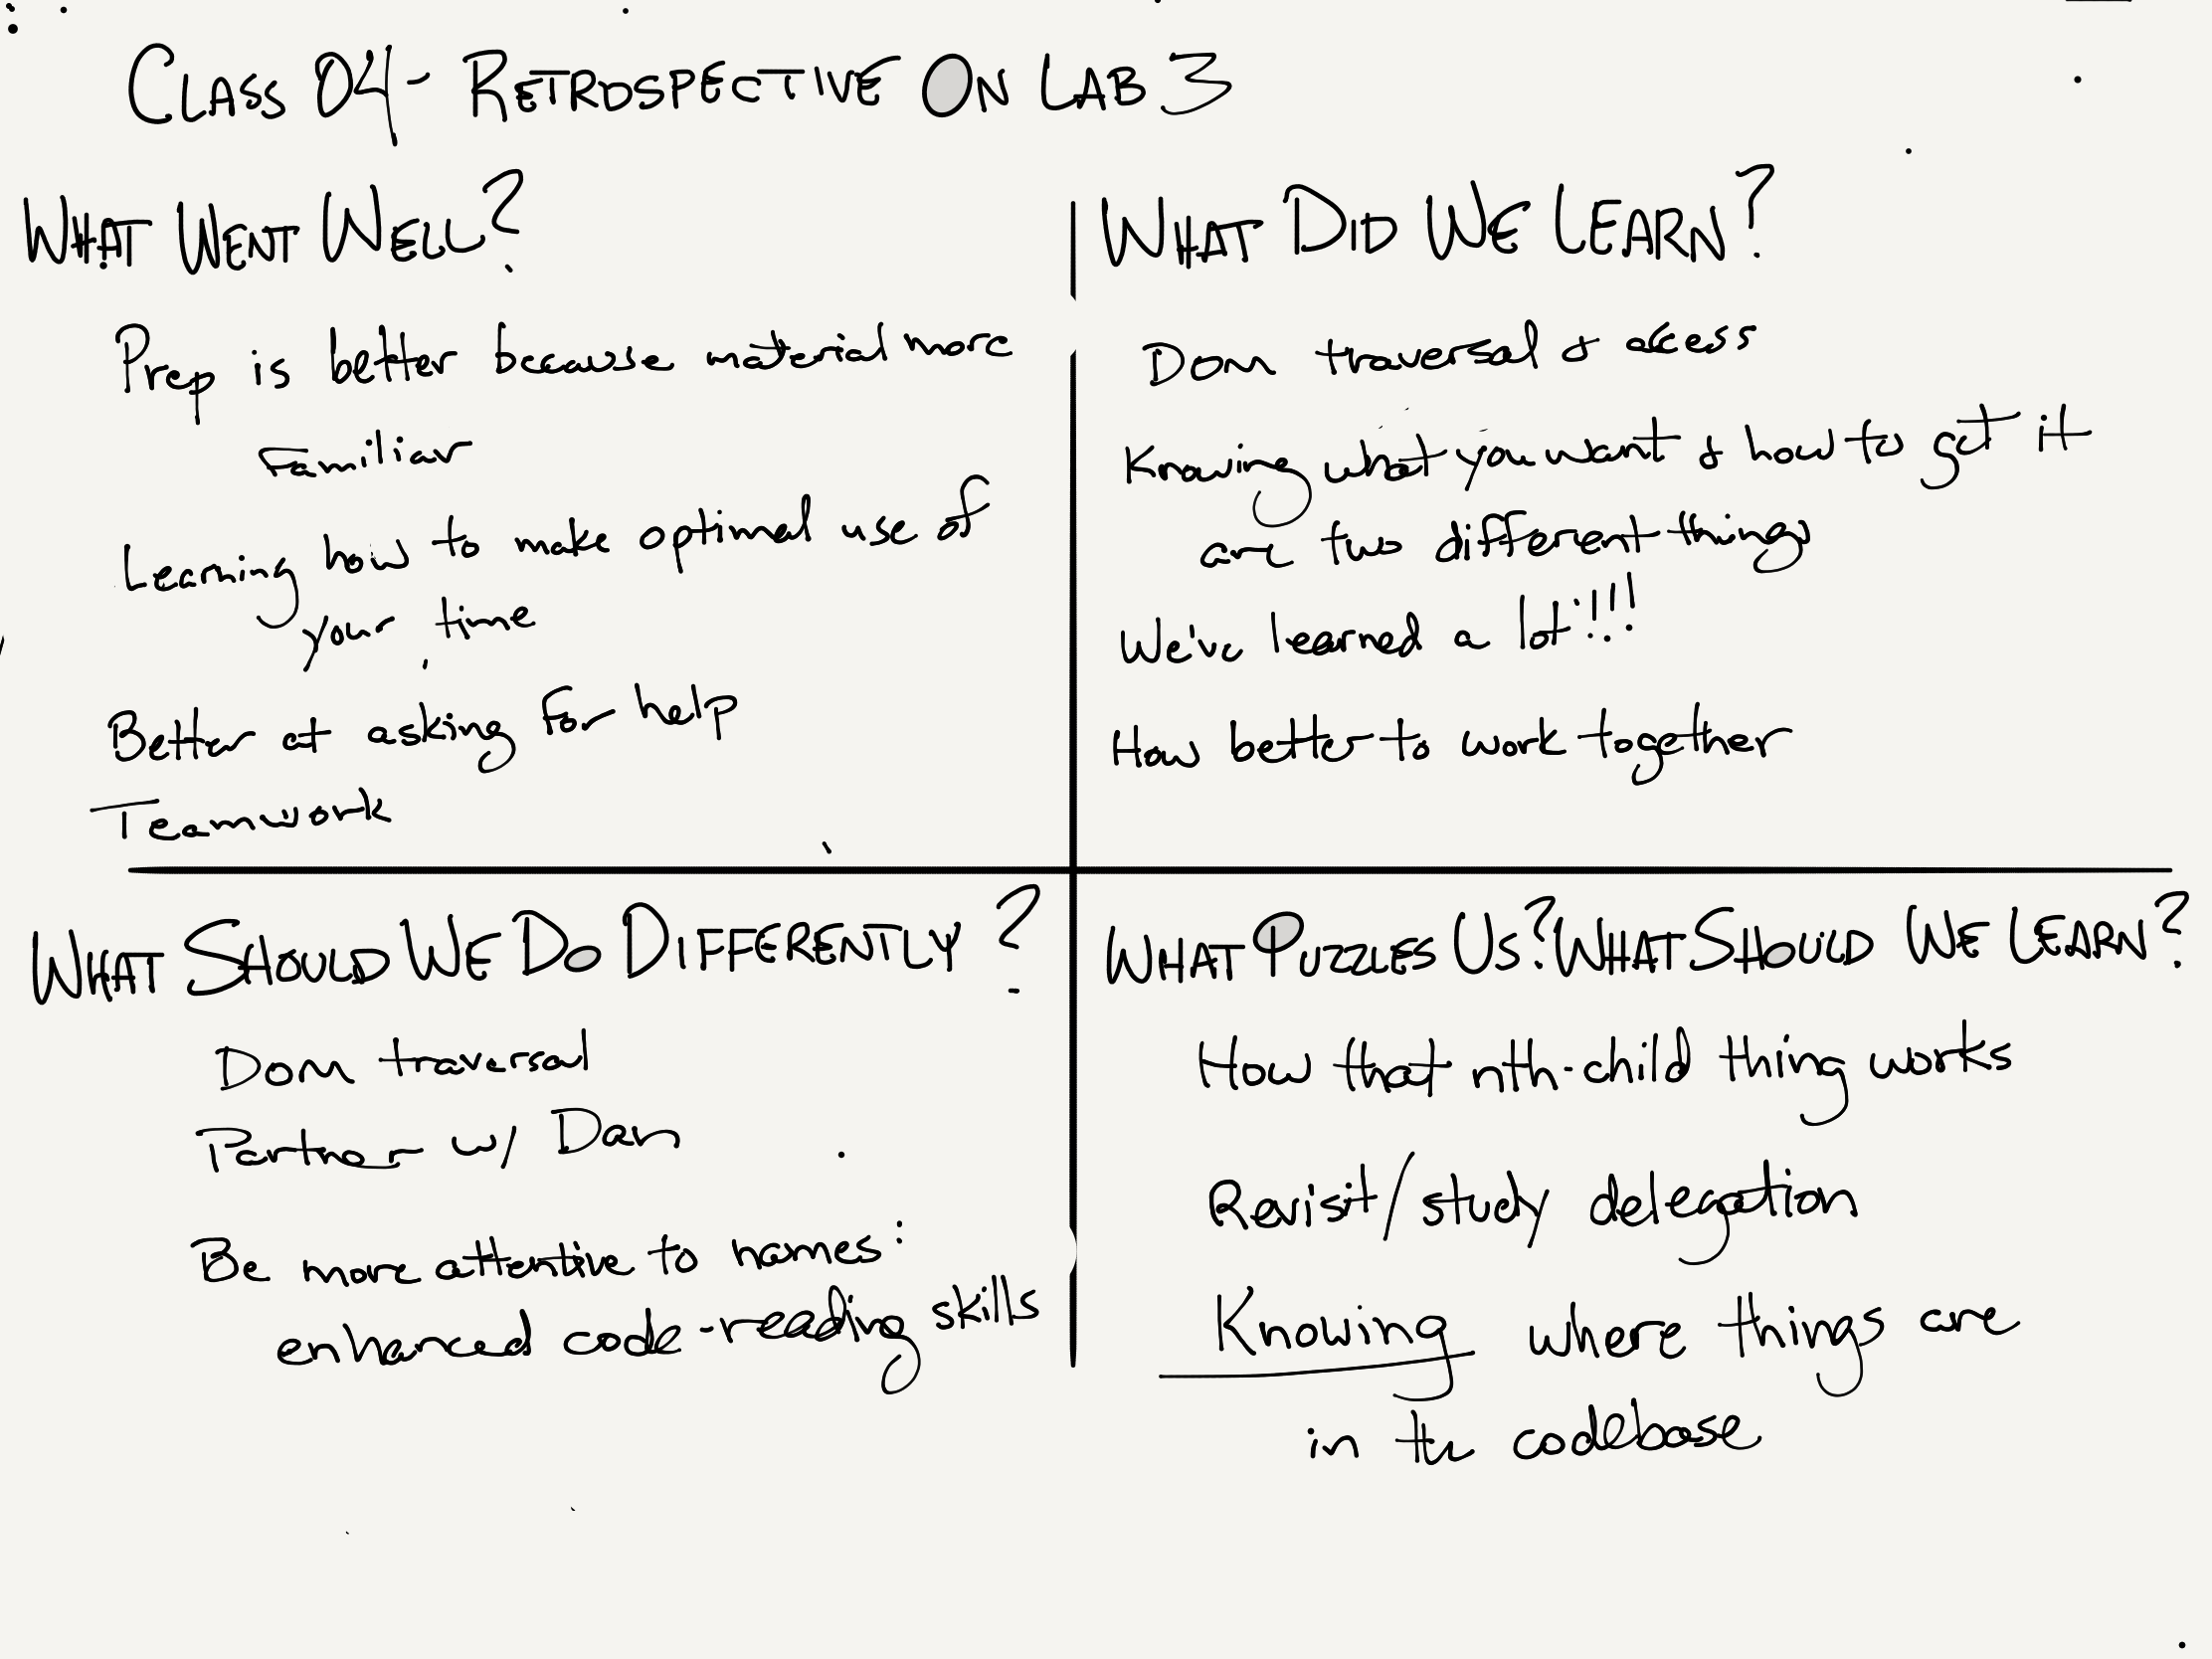 CLASS 04 - RETROSPECTIVE ON LAB 3
WHAT WENT WELL?
Prep is better because material more
Familiar
Learning how to make optimal use of
your time
Better at asking for help
Teamwork
WHAT DID WE LEARN?
Dom traversal & access
Knowing what you want & how to get it
are two different things
We've learned a lot!!!
How better to work together
WHAT SHOULD WE DO DIFFERENTLY?
Dom traversal
Partner w/ Dan
Be more attentive to names:
enhanced code-reading skills
WHAT PUZZLES US? WHAT SHOULD WE LEARN?
How that nth-child thing works
Revisit/study delegation
Knowing where things are
in the codebase